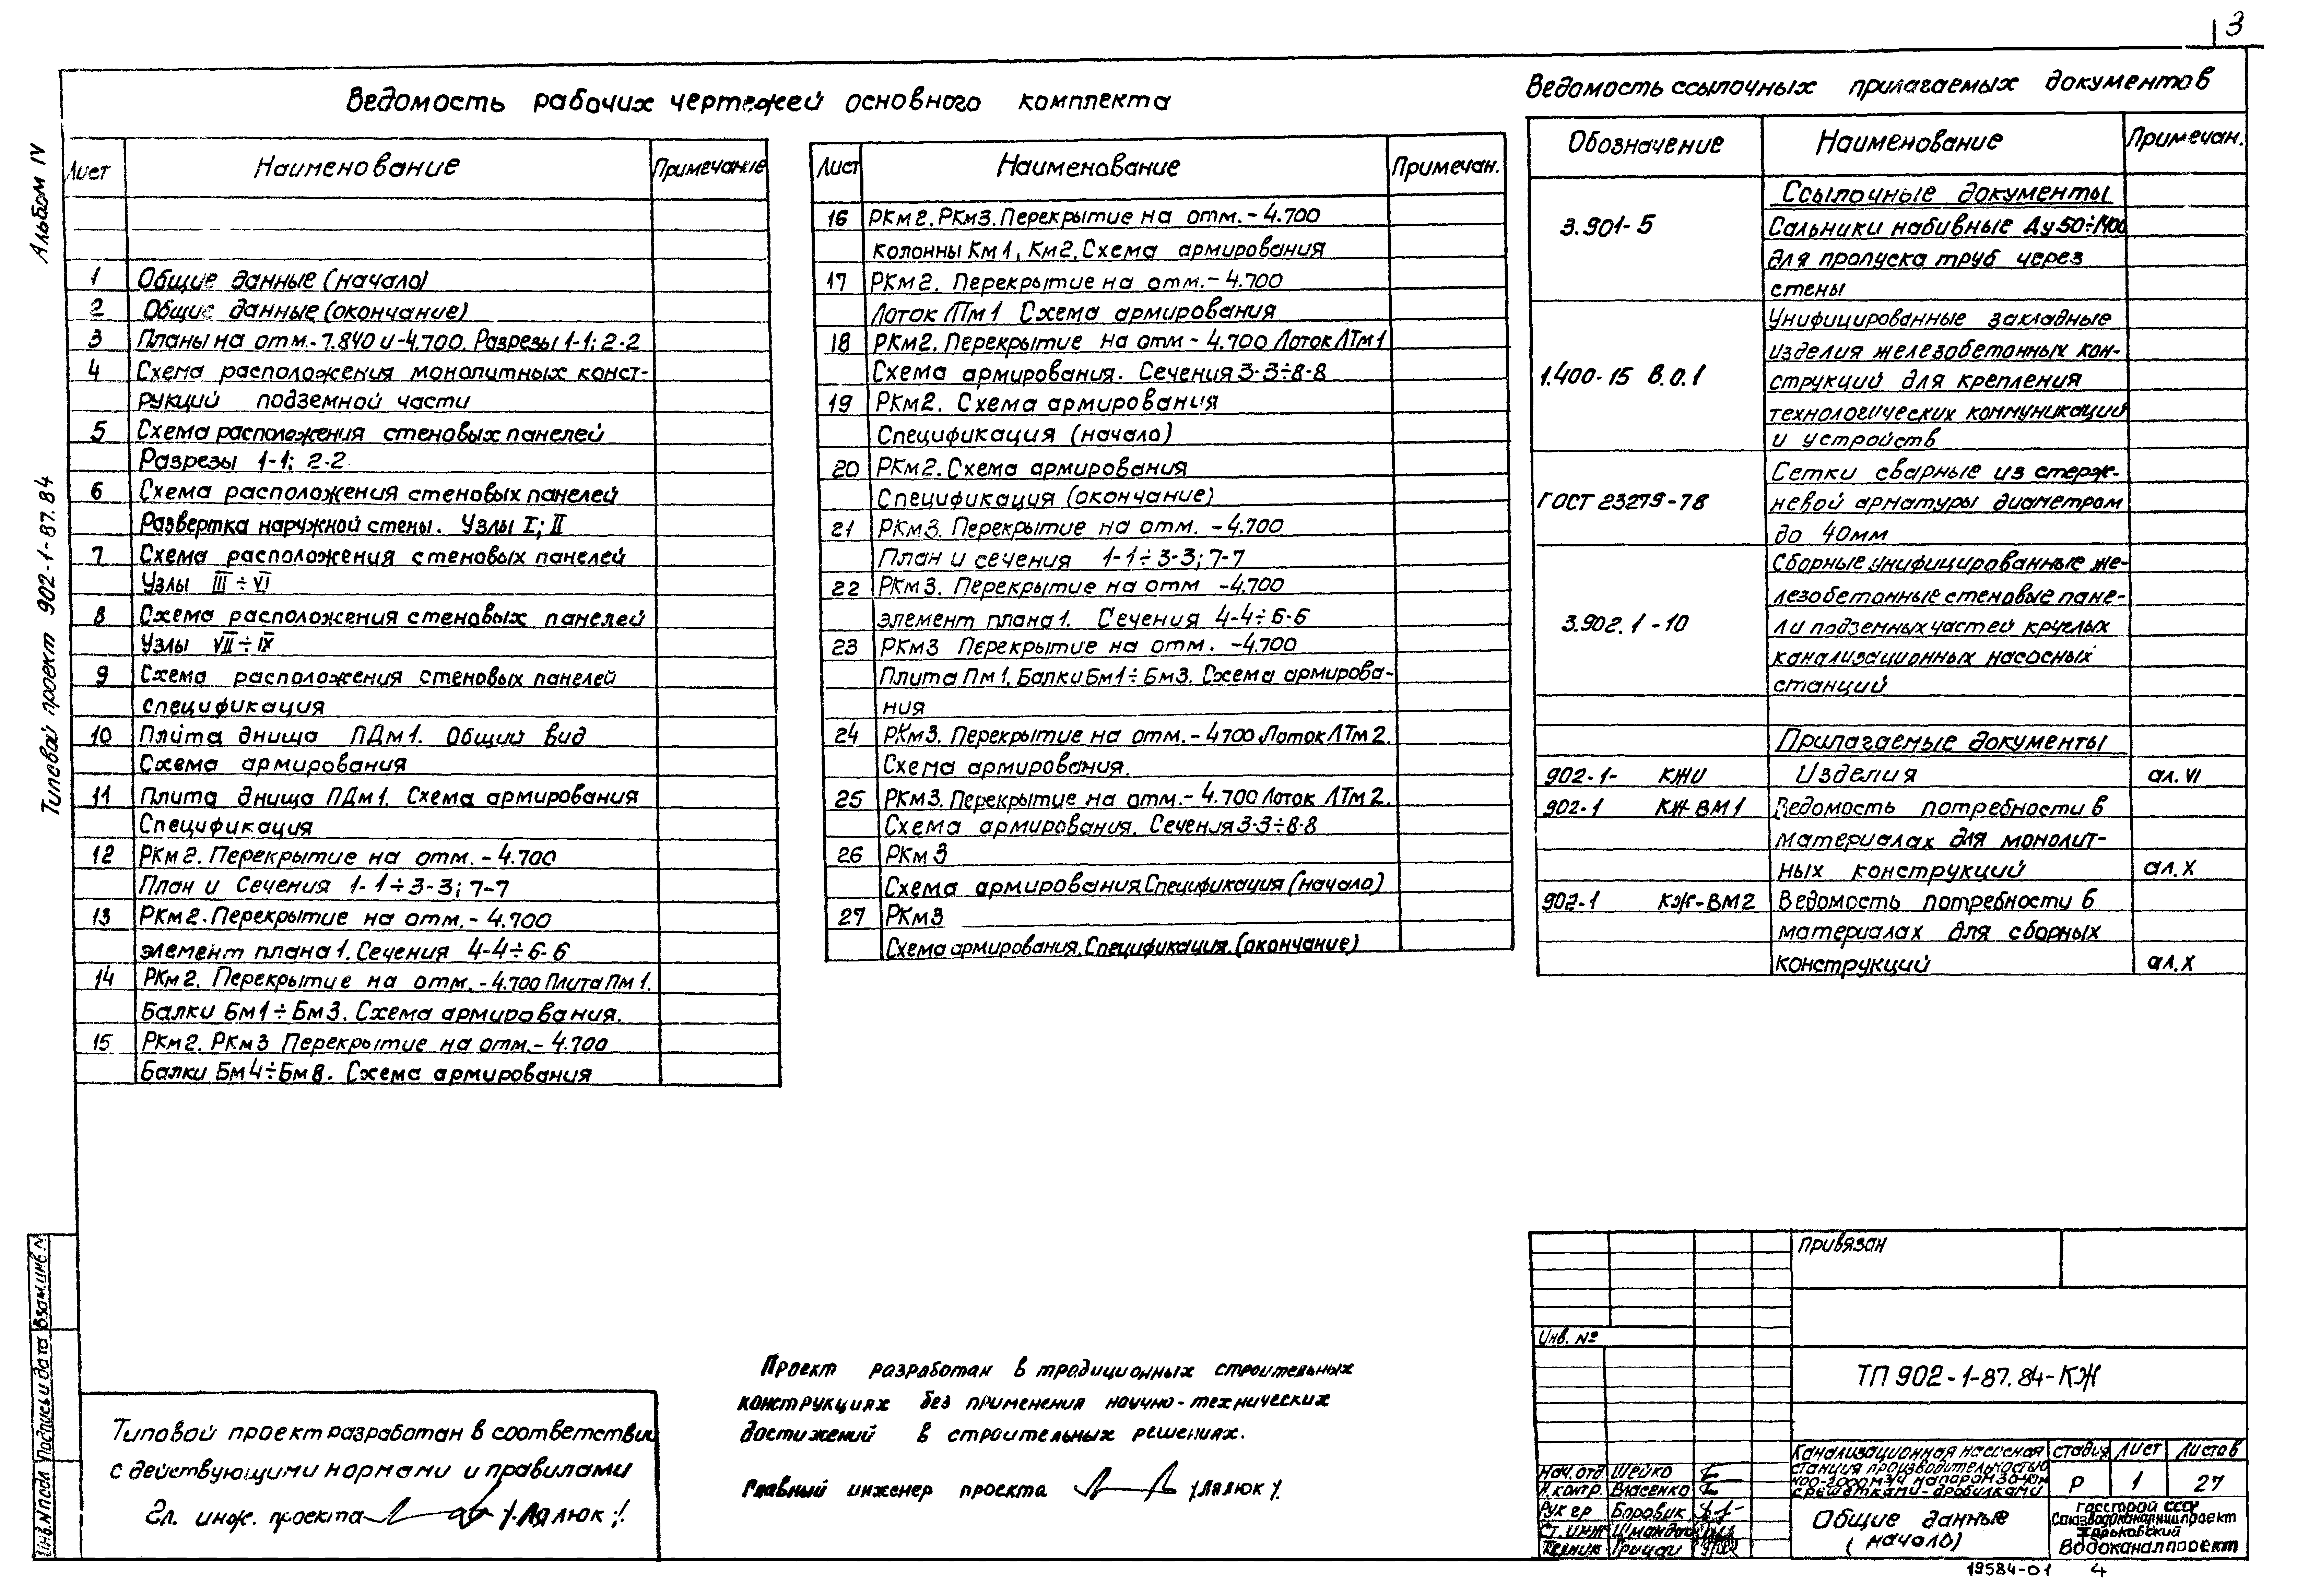 3
Альбом IV
Типовой проект 902-1-87.84
Ведомость рабочих чертежей основного комплекта
Лист Наименование Примечание
1 Общие данные (начало)
2 Общие данные (окончание)
3 Планы на отм.-7.840 и -4.700. Разрезы 1-1; 2-2
4 Схема расположения монолитных конст-
рукций подземной части
5 Схема расположения стеновых панелей
Разрезы 1-1; 2-2.
6 Схема расположения стеновых панелей
Развертка наружной стены. Узлы I; II
7 Схема расположения стеновых панелей
Узлы III ÷ VI
8 Схема расположения стеновых панелей
Узлы VII ÷ IX
9 Схема расположения стеновых панелей
спецификация
10 Плита днища ПДм1. Общий вид
Схема армирования
11 Плита днища ПДм1. Схема армирования
Спецификация
12 РКм2. Перекрытие на отм. -4.700
План и Сечения 1-1÷3-3; 7-7
13 РКм2. Перекрытие на отм. -4.700
элемент плана 1. Сечения 4-4÷6-6
14 РКм2. Перекрытие на отм. -4.700 Плита Пм1.
Балки Бм1÷Бм3. Схема армирования.
15 РКм2. РКм3 Перекрытие на отм. -4.700
Балки Бм4÷Бм8. Схема армирования
Лист Наименование Примечан.
16 РКм2. РКм3. Перекрытие на отм. -4.700
колонны Км1, Км2. Схема армирования
17 РКм2. Перекрытие на отм. -4.700
Лоток ЛТм1 Схема армирования
18 РКм2. Перекрытие на отм -4.700 Лоток ЛТм1
Схема армирования. Сечения 3-3÷8-8
19 РКм2. Схема армирования
Спецификация (начало)
20 РКм2. Схема армирования
Спецификация (окончание)
21 РКм3. Перекрытие на отм. -4.700
План и сечения 1-1÷3-3; 7-7
22 РКм3. Перекрытие на отм -4.700
элемент плана 1. Сечения 4-4÷6-6
23 РКм3 Перекрытие на отм. -4.700
Плита Пм1. Балки Бм1÷Бм3. Схема армирова-
ния
24 РКм3. Перекрытие на отм. -4700 Лоток ЛТм2.
Схема армирования.
25 РКм3. Перекрытие на отм. -4.700 Лоток ЛТм2.
Схема армирования. Сечения 3-3÷8-8
26 РКм3
Схема армирования Спецификация (начало)
27 РКм3
Схема армирования. Спецификация. (окончание)
Ведомость ссылочных прилагаемых документов
Обозначение Наименование Примечан.
Ссылочные документы
3.901-5 Сальники набивные Ду50÷1400
для пропуска труб через
стены
Унифицированные закладные
изделия железобетонных кон-
1.400-15 В.0.1 струкций для крепления
технологических коммуникаций
и устройств
Сетки сварные из стерж-
ГОСТ 23279-78 невой арматуры диаметром
до 40мм
Сборные унифицированные же-
лезобетонные стеновые пане-
3.902.1-10 ли подземных частей круглых
канализационных насосных
станций
Прилагаемые документы
902-1- КЖИ Изделия ал. VI
902-1 КЖ-ВМ1 Ведомость потребности в
материалах для монолит-
ных конструкций ал. X
902-1 КЖ-ВМ2 Ведомость потребности в
материалах для сборных
конструкций ал. X
Типовой проект разработан в соответствии
с действующими нормами и правилами
Гл. инж. проекта /Лялюк/
Проект разработан в традиционных строительных
конструкциях без применения научно-технических
достижений в строительных решениях.
Главный инженер проекта /Лялюк/
Взам.инв.№
Подпись и дата
Инв.№подл
привязан
Инв. №
ТП 902-1-87.84-КЖ
Канализационная насосная
станция производительностью
400-2000 м3/ч напором 30-40м
с решетками-дробилками
стадия Лист Листов
Р 1 27
Нач.отд Шейко
Н.контр. Власенко
Рук гр Боровик
Ст.инж
Техник Грицай
Общие данные
(начало)
Госстрой СССР
Союзводоканалниипроект
Харьковский
Водоканалпроект
19584-01 4